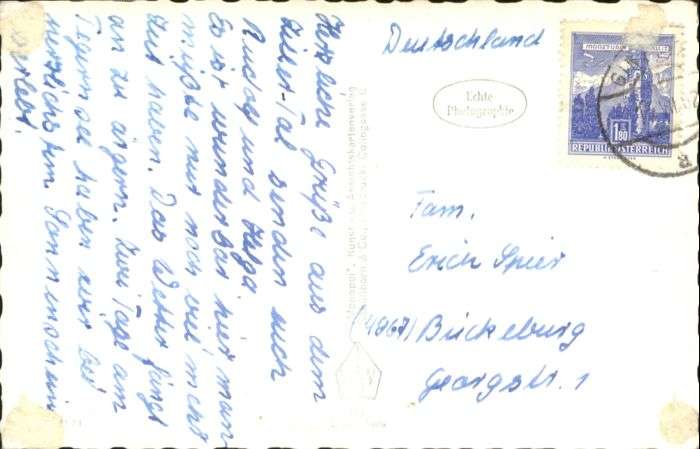 Herzliche Grüße aus dem
Ziller-Tal senden euch
Rudolf und Helga.
Es ist wunderbar hier man
müßte nur noch viel mehr
Zeit haben. Das Wetter fängt
an zu ärgern. Zwei Tage am
Tegernsee haben wir bei
herrlichstem Sonnenschein
verlebt.
Deutschland
Echte
Photographie
MÜNZTURM HALL
1.80
REPUBLIK ÖSTERREICH
Fam.
Erich Spier
(4967) Bückeburg
Georgstr. 1